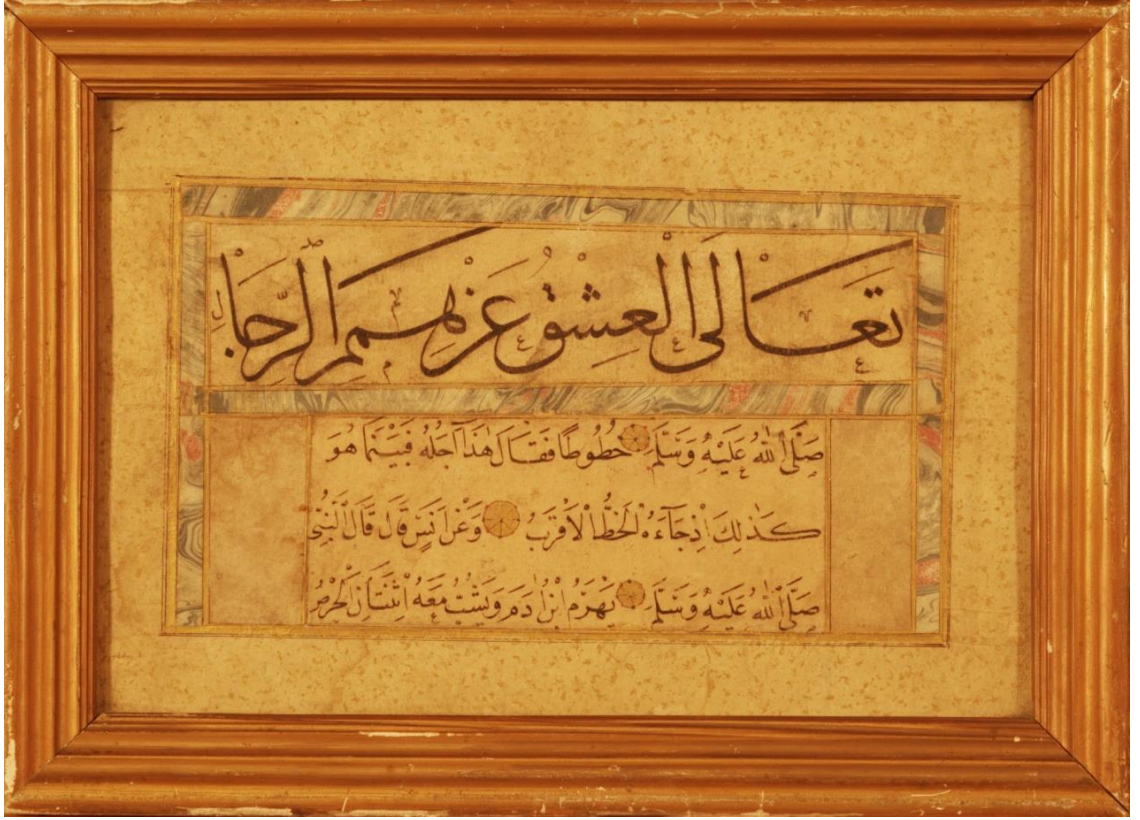 تَعَالَى الْعِشْقُ عَنْ هِمَمِ الرِّجَالِ
صَلَّى اللهُ عَلَيْهِ وَسَلَّمَ خُطُوطًا فَقَالَ هٰذَا اَجَلُهُ فَبَيْنَمَا هُوَ
كَذٰلِكَ اِذْ جَآءَهُ الْخَطُّ الْاَقْرَبُ وَعَنْ اَنَسٍ قَالَ قَالَ النَّبِىُّ
صَلَّى اللهُ عَلَيْهِ وَسَلَّمَ يَهْرَمُ ابْنُ اٰدَمَ وَيَشُبُّ مَعَهُ اثْنَتَانِ الْحِرْصُ